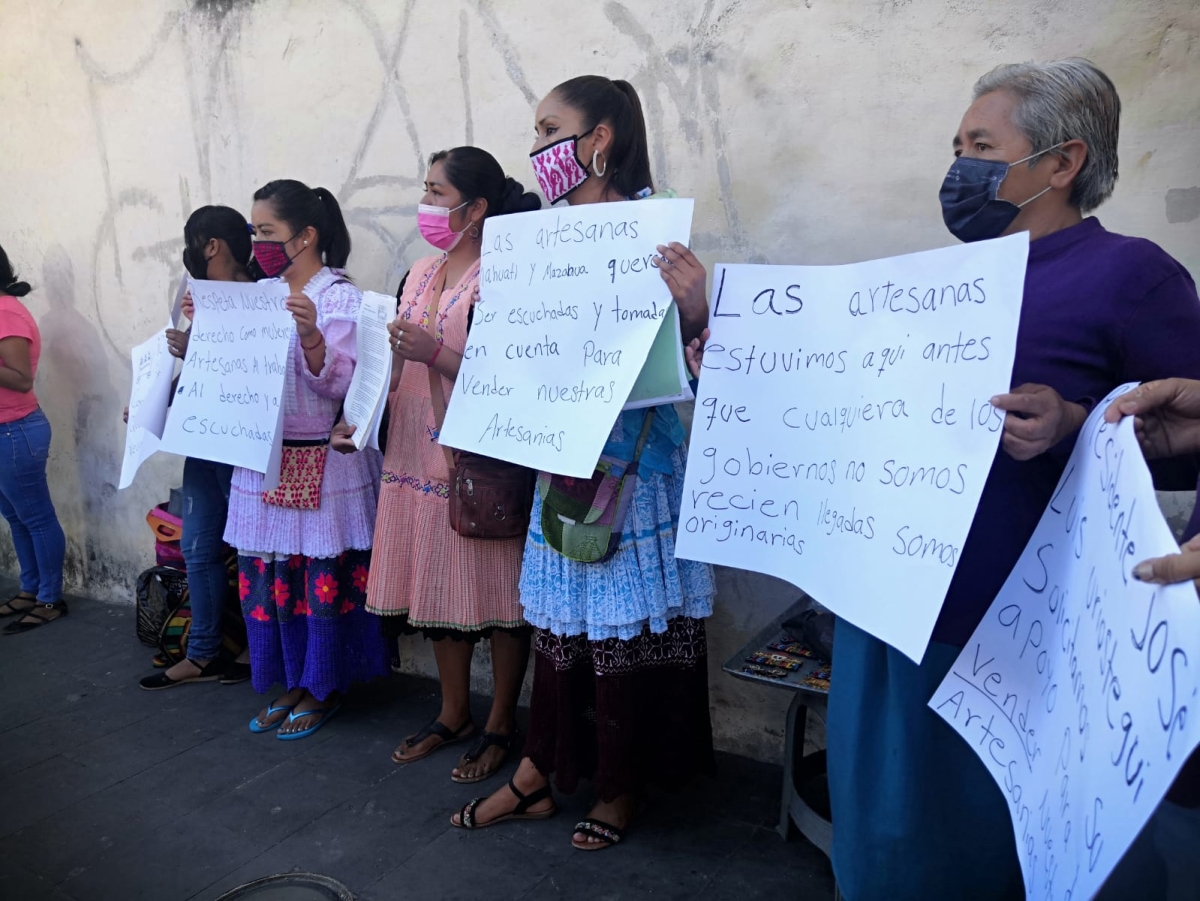 Respeta Nuestro
derecho como mujeres
Artesanas Al
Al derecho y a
escuchadas
Las artesanas
y Mazahua
Ser escuchadas y tomada
en cuenta para
Vender nuestras
Artesanias
Las artesanas
estuvimos aqui antes
que cualquiera de los
gobiernos no somos
recien llegadas somos
originarias
José
Uriostegui
Solicitamos Su
apoyo para
Vender
Artesanias